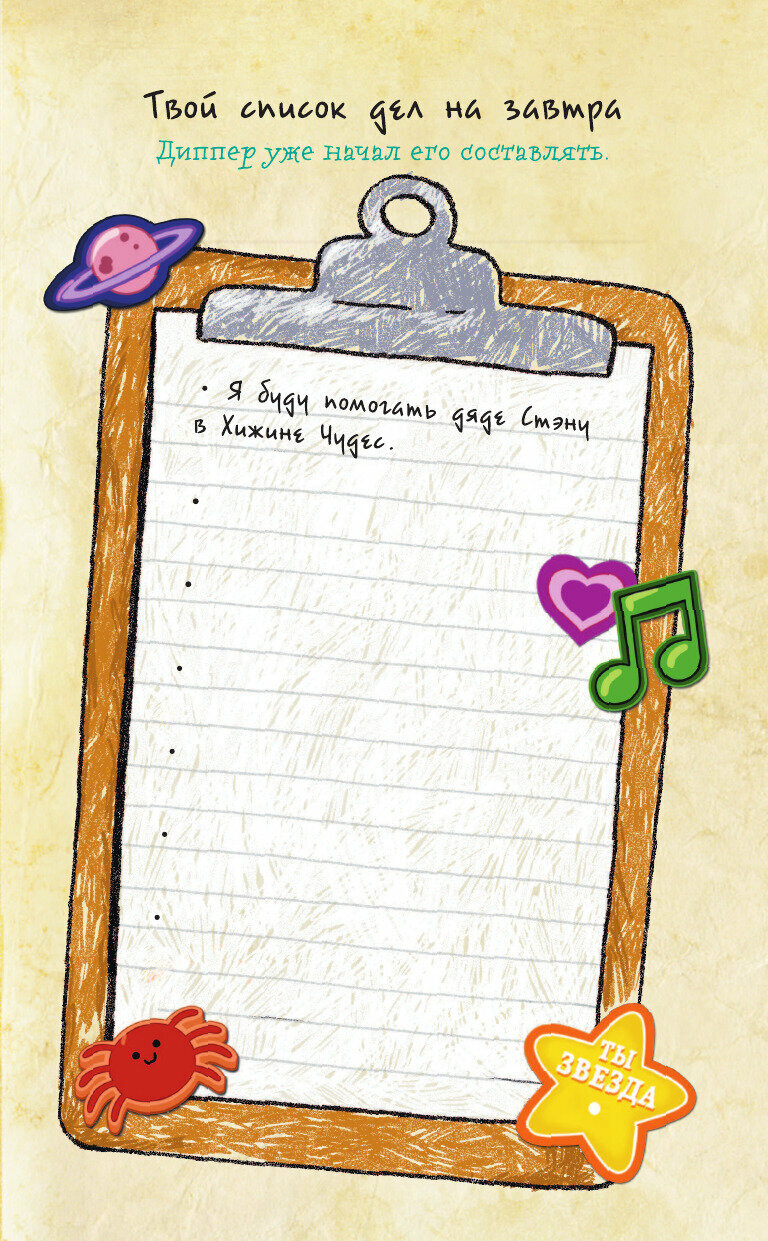 Твой список дел на завтра
Диппер уже начал его составлять.
• Я буду помогать дяде Стэну
в Хижине Чудес.
•
•
•
•
•
•
ТЫ
ЗВЕЗДА